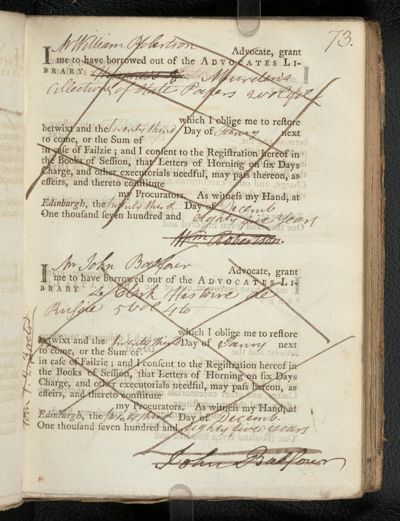 73.
I Mr William Robertson Advocate, grant
me to have borrowed out of the ADVOCATES LI-
BRARY Murdin's
Collection of State Papers 2 vol fol
which I oblige me to restore
betwixt and the twenty third Day of Janry next
to come, or the Sum of
in case of Failzie; and I consent to the Registration hereof in
the Books of Session, that Letters of Horning on six Days
Charge, and other executorials needful, may pass thereon, as
effeirs, and thereto constitute
my Procurators. As witness my Hand, at
Edinburgh, the twenty third Day of Decemb
One thousand seven hundred and eighty five years
Wm Robertson.
I Mr John Balfour Advocate, grant
me to have borrowed out of the ADVOCATES LI-
BRARY Le Clerk Histoire de
Russie 5 vol 4to
which I oblige me to restore
betwixt and the twenty third Day of Janry next
to come, or the Sum of
in case of Failzie; and I consent to the Registration hereof in
the Books of Session, that Letters of Horning on six Days
Charge, and other executorials needful, may pass thereon, as
effeirs, and thereto constitute
my Procurators. As witness my Hand, at
Edinburgh, the twenty third Day of Decemb.
One thousand seven hundred and eighty five years
John Balfour